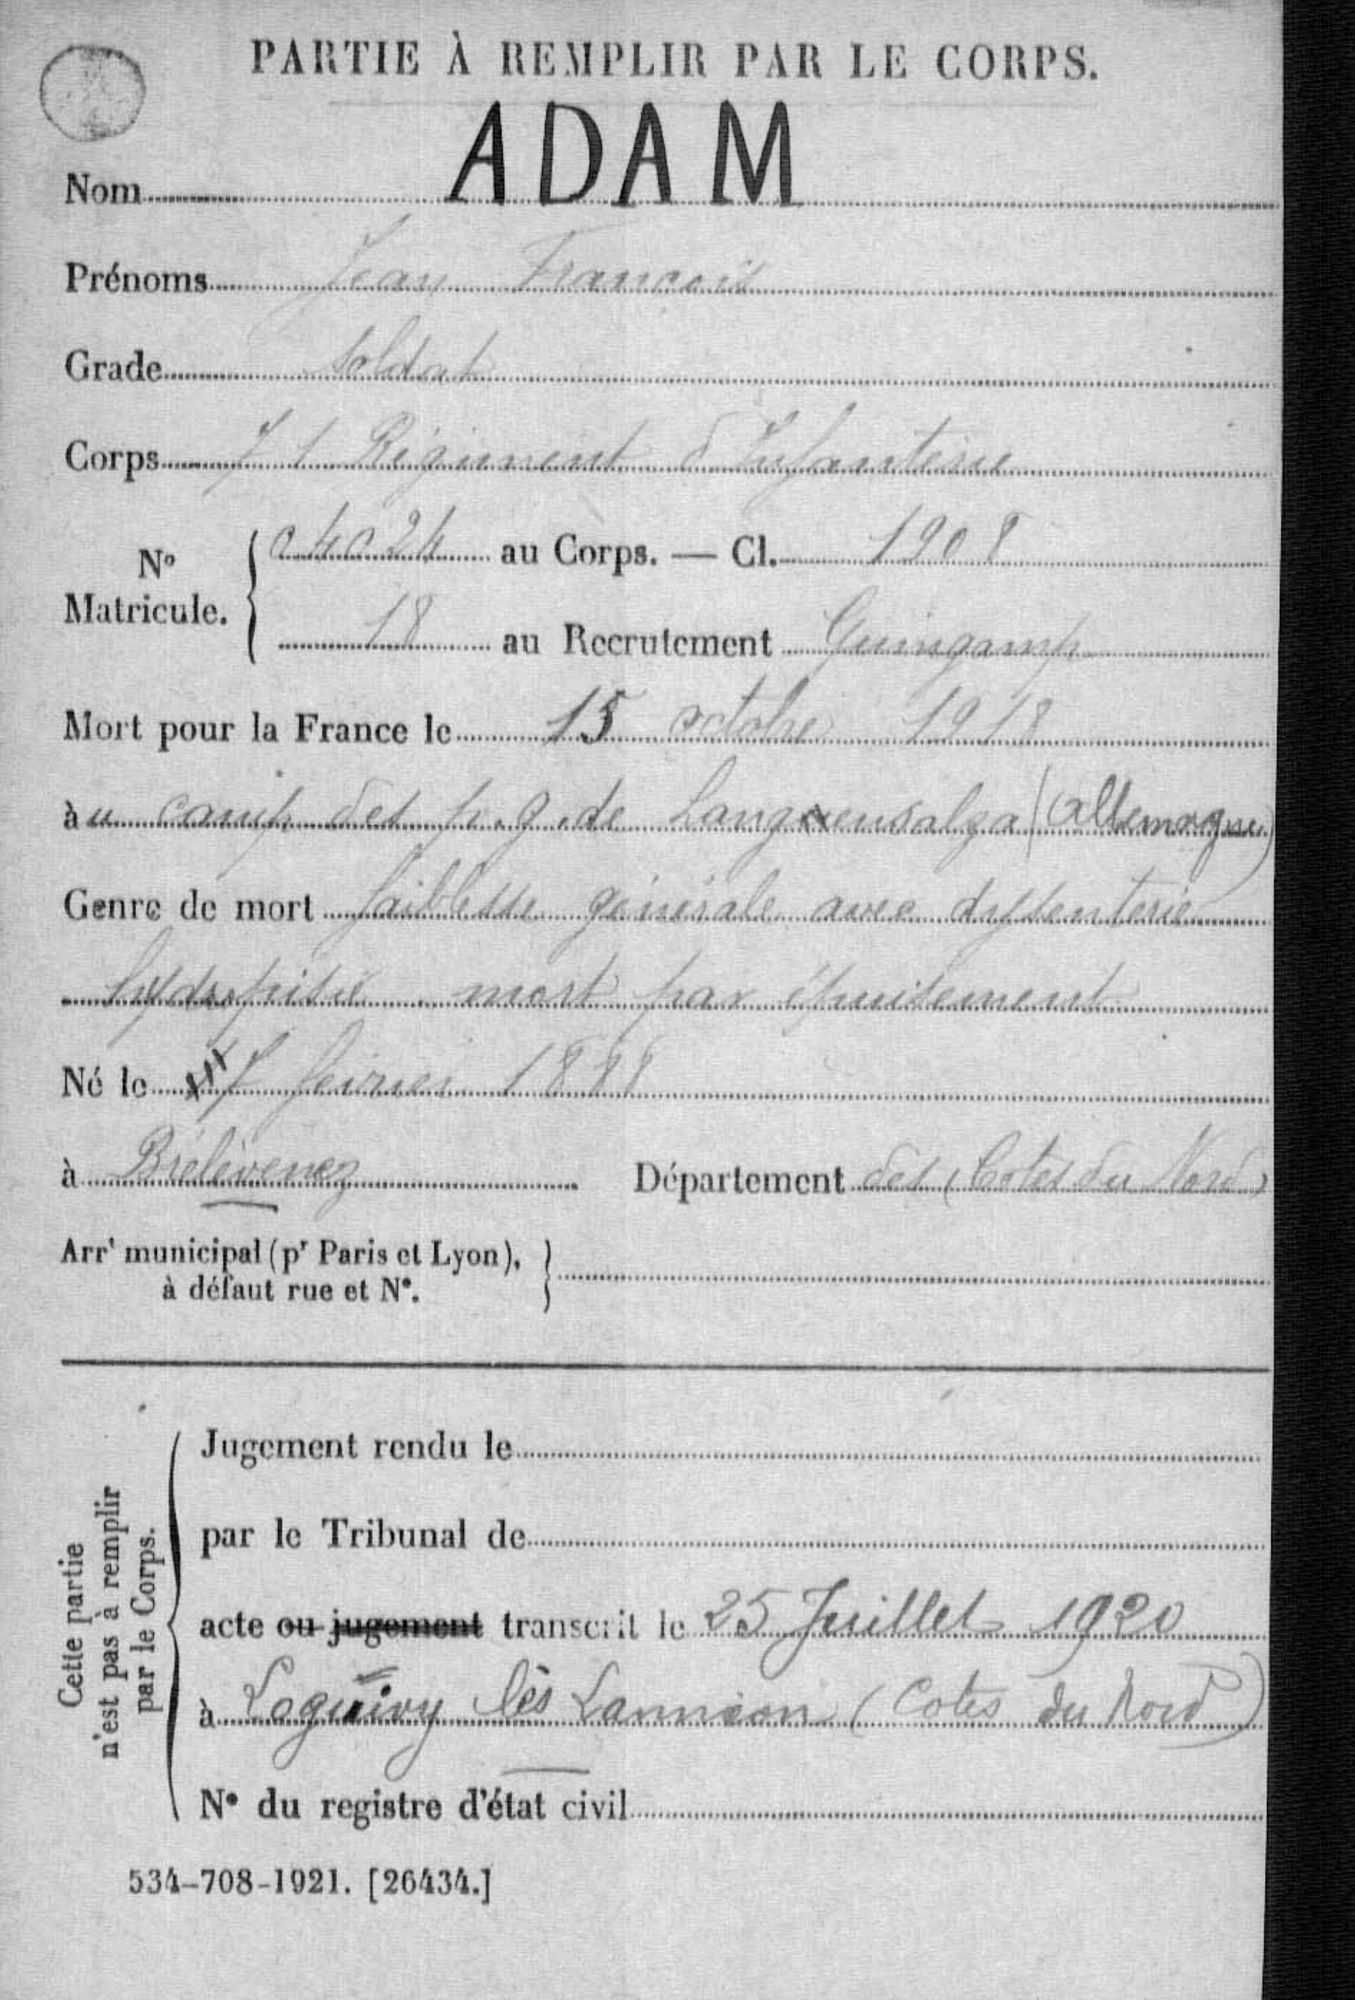 PARTIE À REMPLIR PAR LE CORPS.
Nom ADAM
Prénoms Jean François
Grade soldat
Corps 71 Régiment d'Infanterie
N° Matricule. 04024 au Corps. — Cl. 1908
18 au Recrutement Guingamp
Mort pour la France le 15 octobre 1918
àu camp des p.g. de Langensalza (Allemagne)
Genre de mort faiblesse générale avec dyssenterie
hydropisie mort par épuisement
Né le 7 février 1888
à Brélévenez Département des (Cotes du Nord)
Arrt municipal (pr Paris et Lyon),
à défaut rue et N°.
Cette partie
n'est pas à remplir
par le Corps.
Jugement rendu le
par le Tribunal de
acte ou jugement transcrit le 25 Juillet 1920
à Loguivy lès Lannion (Cotes du Nord)
N° du registre d'état civil
534-708-1921. [26434.]